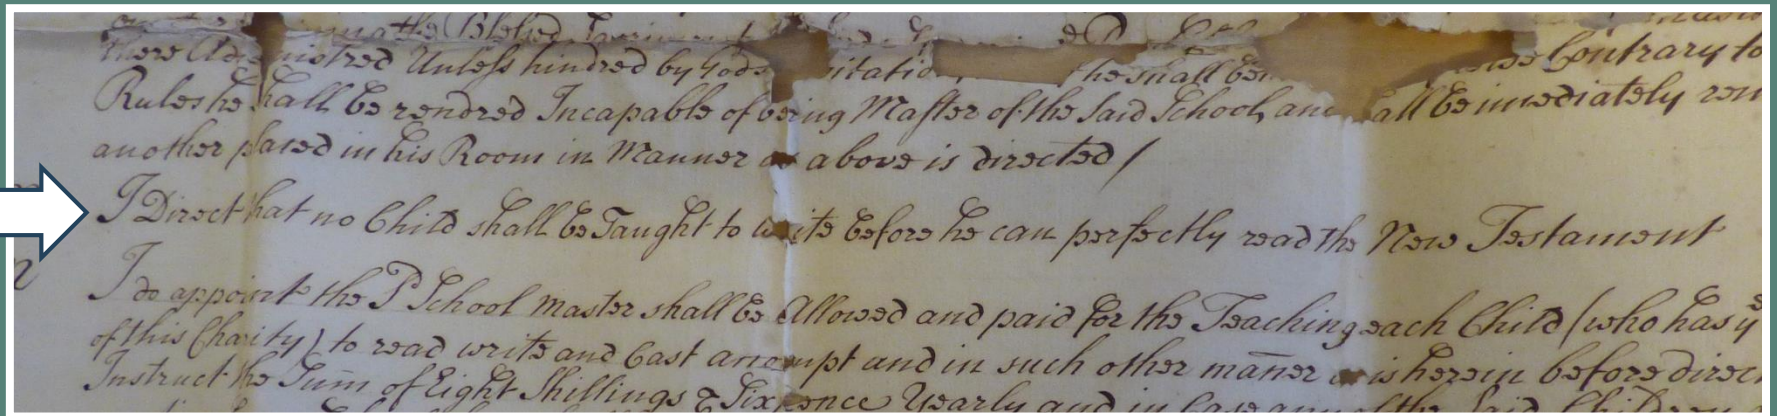 the Blessed
there Unless hindred by Gods he shall be Contrary to
Rules he shall be rendred Incapable of being Master of the Said School, and shall be imediately
another placed in his Room in Manner as above is directed /
I Direct that no Child shall be Taught to write before he can perfectly read the New Testament
I do appoint the Sd School Master shall be Allowed and paid for the Teaching each Child (who has ye
of this Charity) to read write and Cast accompt and in such other mañer as is herein before
Instruct the Sum̄ of Eight Shillings & Sixpence Yearly and in Case any of the Said